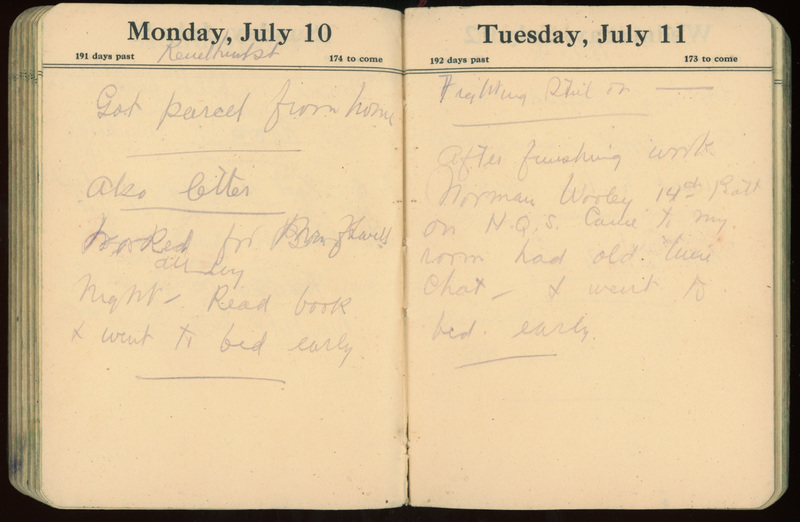 Monday, July 10
191 days past
174 to come
Got parcel from home
Also letter
Worked for
all day
Night - Read book
& went to bed early
Tuesday, July 11
192 days past
173 to come
Fighting Still on
After finishing work
Norman 14th Batt
on H.Q.S. Came to my
room had old time
Chat - & went to
bed. early.